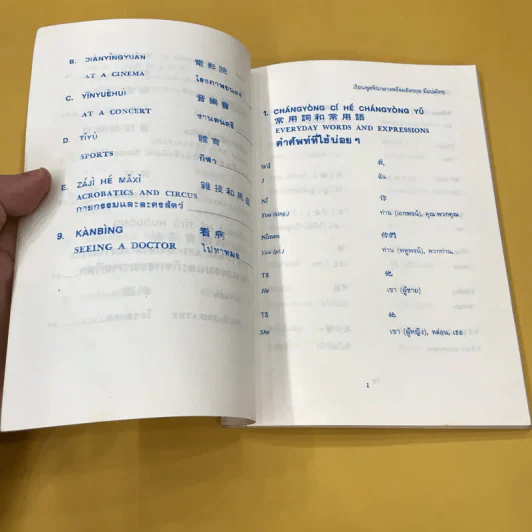 B. DIÀNYǏNGYUÀN 電影院
AT A CINEMA โรงภาพยนตร์
C. YĪNYUÈHUÌ 音樂會
AT A CONCERT งานดนตรี
D. TǏYÙ 體育
SPORTS กีฬา
E. ZÁJÌ HÉ MǍXÌ 雜技和馬戲
ACROBATICS AND CIRCUS
กายกรรมและละครสัตว์
9. KÀNBÌNG 看病
SEEING A DOCTOR ไปหาหมอ
เรียนพูดจีนกลางพร้อมอังกฤษ
1. CHÁNGYÒNG CÍ HÉ CHÁNGYÒNG YǓ
常用詞和常用語
EVERYDAY WORDS AND EXPRESSIONS
คำศัพท์ที่ใช้บ่อย ๆ
Wǒ 我
I ฉัน
Nǐ 你
You (sing.) ท่าน (เอกพจน์), คุณ พวกคุณ
Nǐmen 你們
You (pl.) ท่าน (พหูพจน์), พวกท่าน,
Tā 他
He เขา (ผู้ชาย)
Tā 她
She เขา (ผู้หญิง), หล่อน, เธอ
1